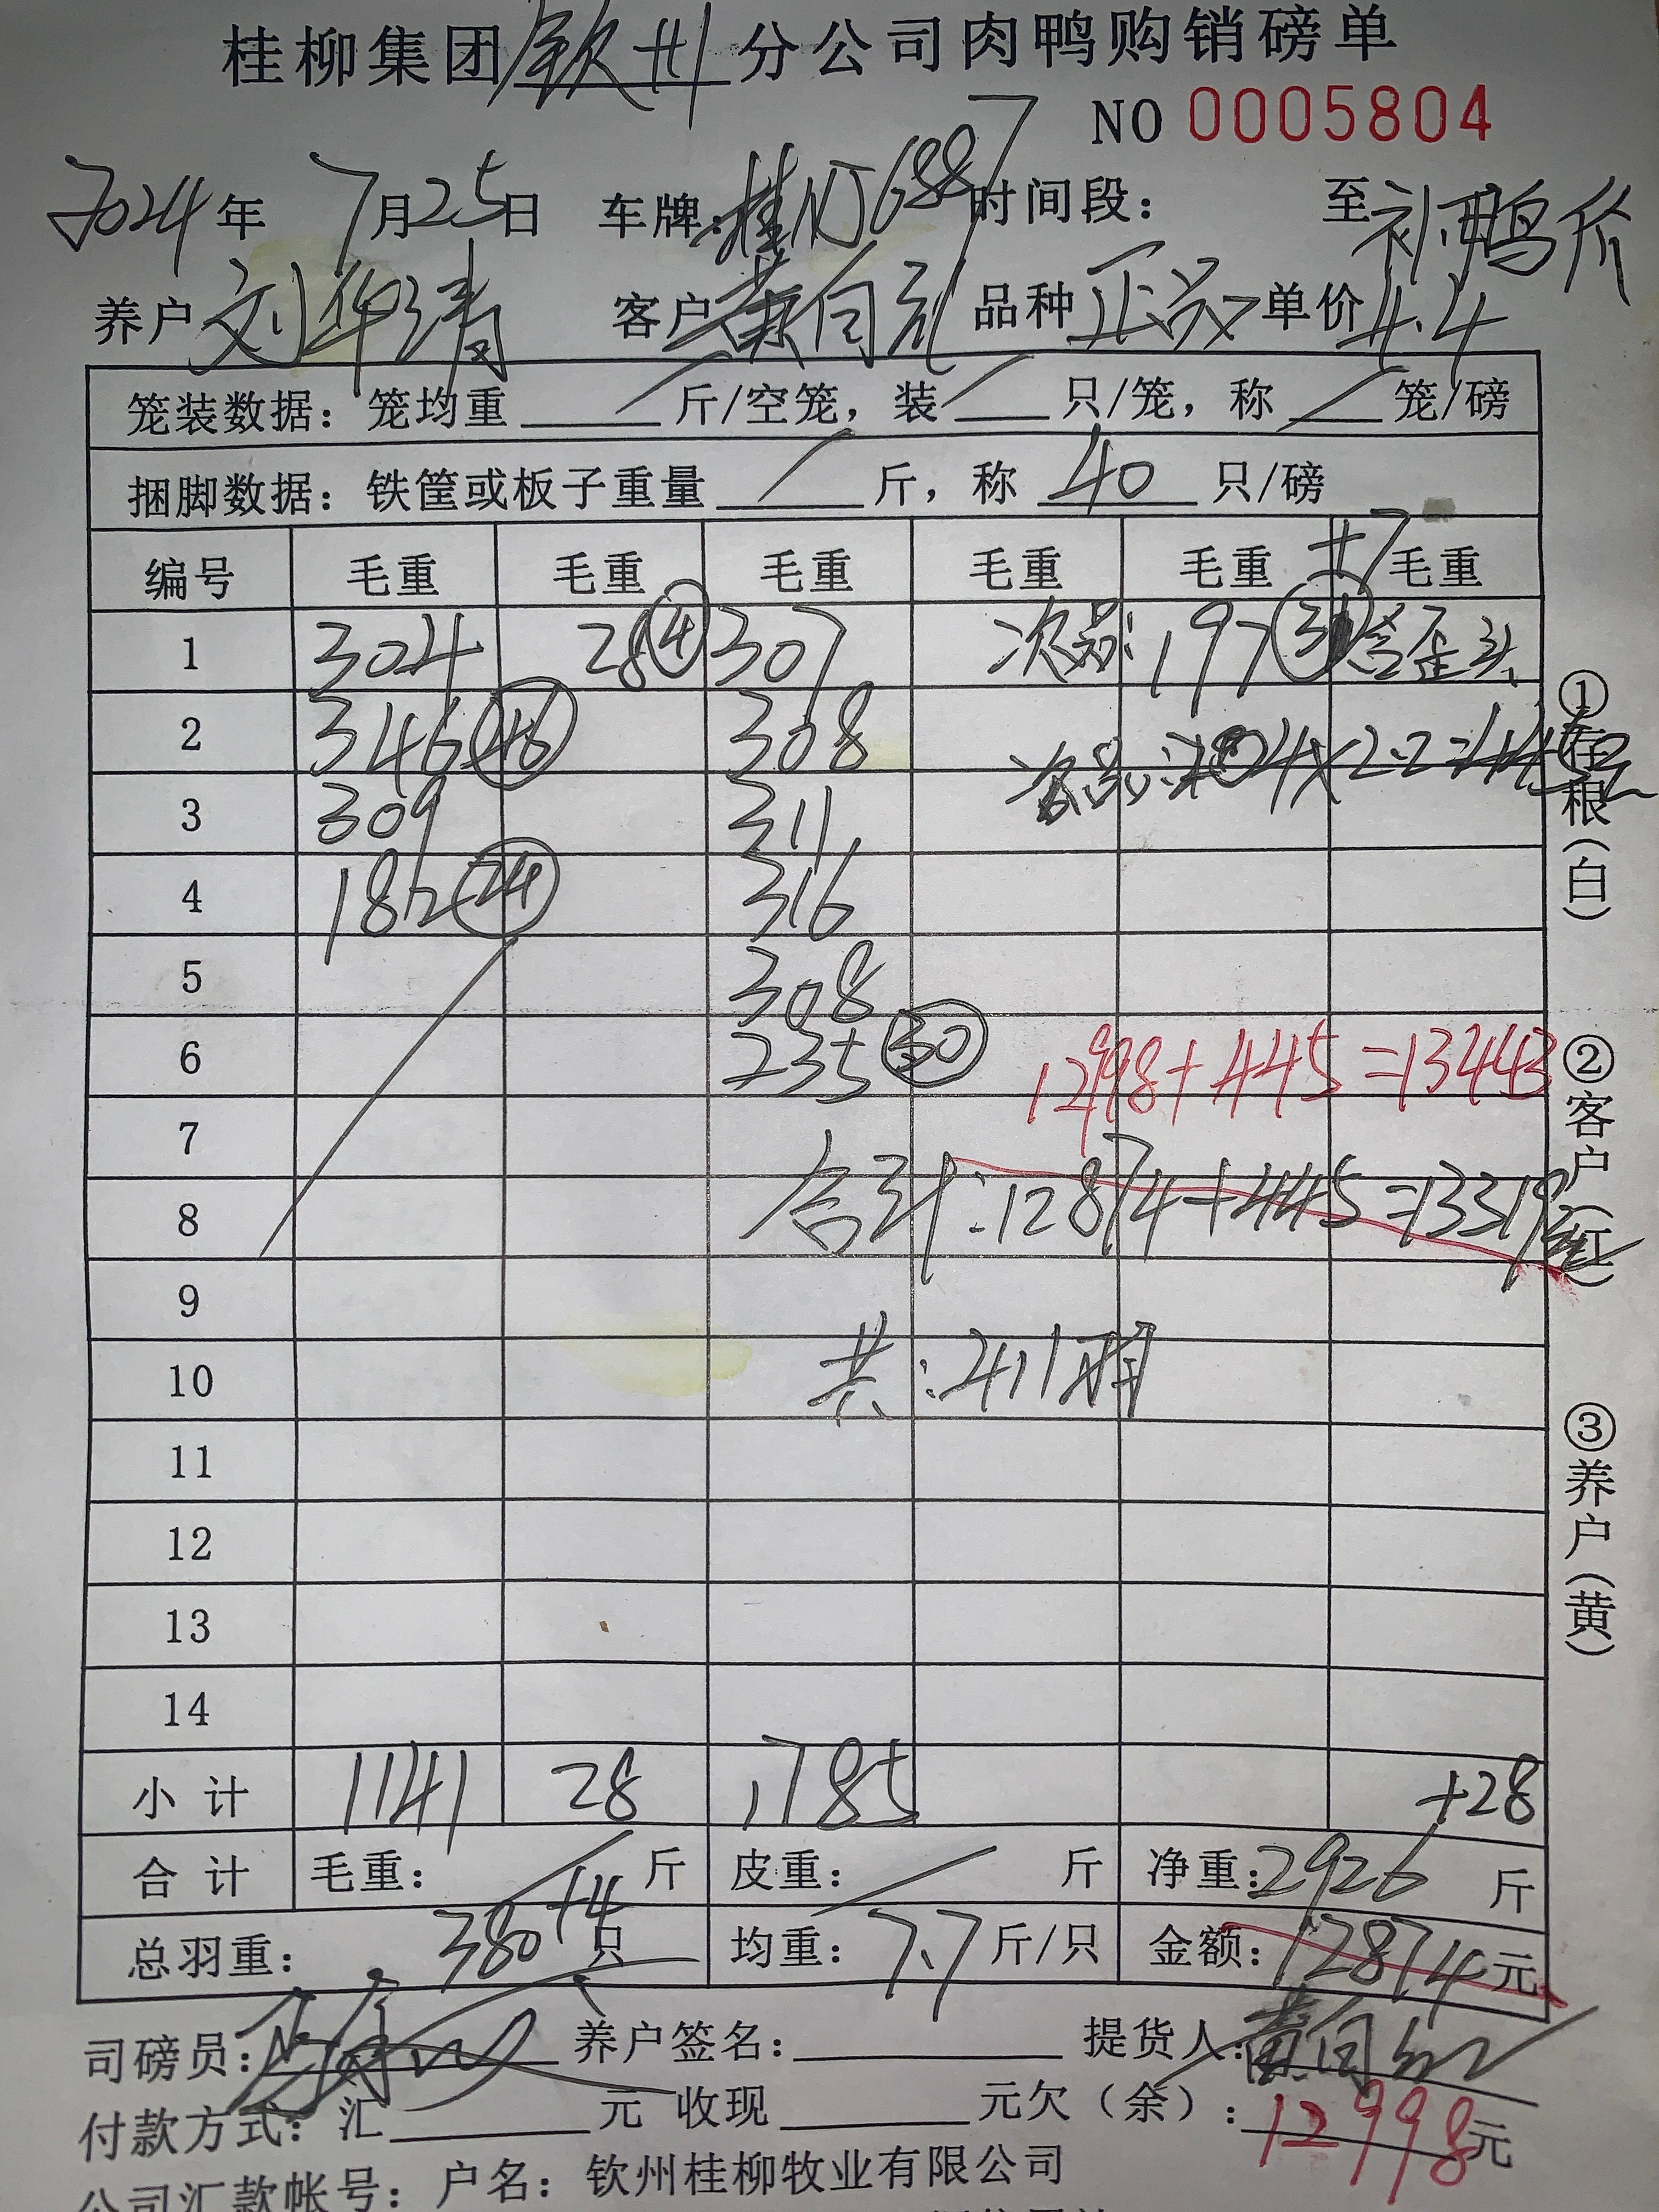 桂柳集团钦州分公司肉鸭购销磅单
NO 0005804
2024年 7月25日 车牌:桂NJ6887 时间段: 至 补鸭价
养户 刘华清 客户 黄向 品种 正品 单价 4.4
笼装数据: 笼均重 / 斤/空笼, 装 / 只/笼, 称 / 笼/磅
捆脚数据: 铁筐或板子重量 / 斤, 称 40 只/磅
编号 毛重 毛重 毛重 毛重 毛重 +7 毛重
1 304 28 ④ 307 次品: 197 含歪头
2 346 48 308 次品: 204×2.2=445元
3 309 311
4 182 24 316
5 308
6 235 30 12998+445=13443
7
8 合计:12874+445=13319元
9
10 共:411羽
11
12
13
14
小计 1141 28 1785 +28
合计 毛重: / 斤 皮重: / 斤 净重: 2926 斤
总羽重: 380+4 只 均重: 7.7 斤/只 金额: 12874 元
司磅员: 养户签名: 提货人: 黄向
付款方式: 汇 元 收现 元欠(余): 12998元
公司汇款帐号: 户名: 钦州桂柳牧业有限公司
①存根(白)
②客户(红)
③养户(黄)